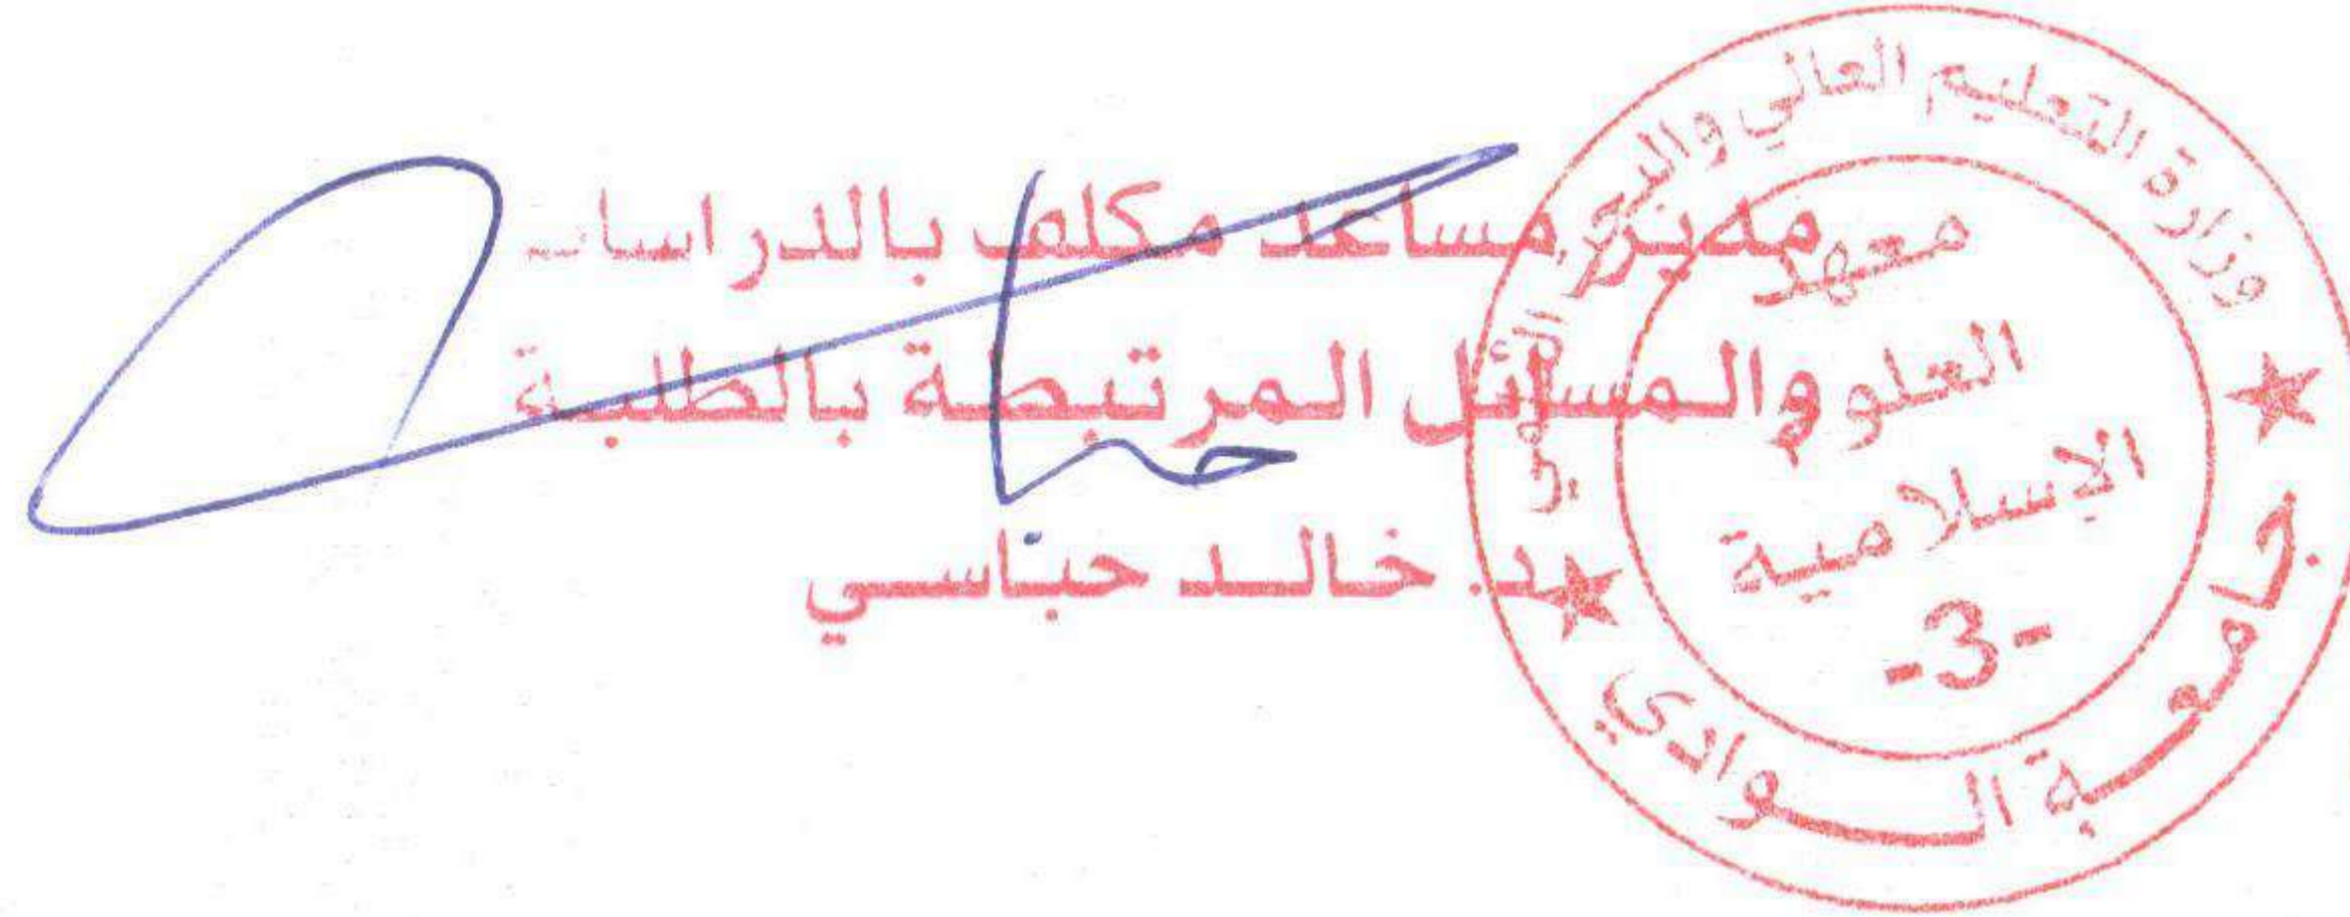 مدير مساعد مكلف بالدراسات
والمسائل المرتبطة بالطلبة
د. خالد حباسي
وزارة التعليم العالي والبحث العلمي
معهد
العلوم
الإسلامية
-3-
جامعة الوادي